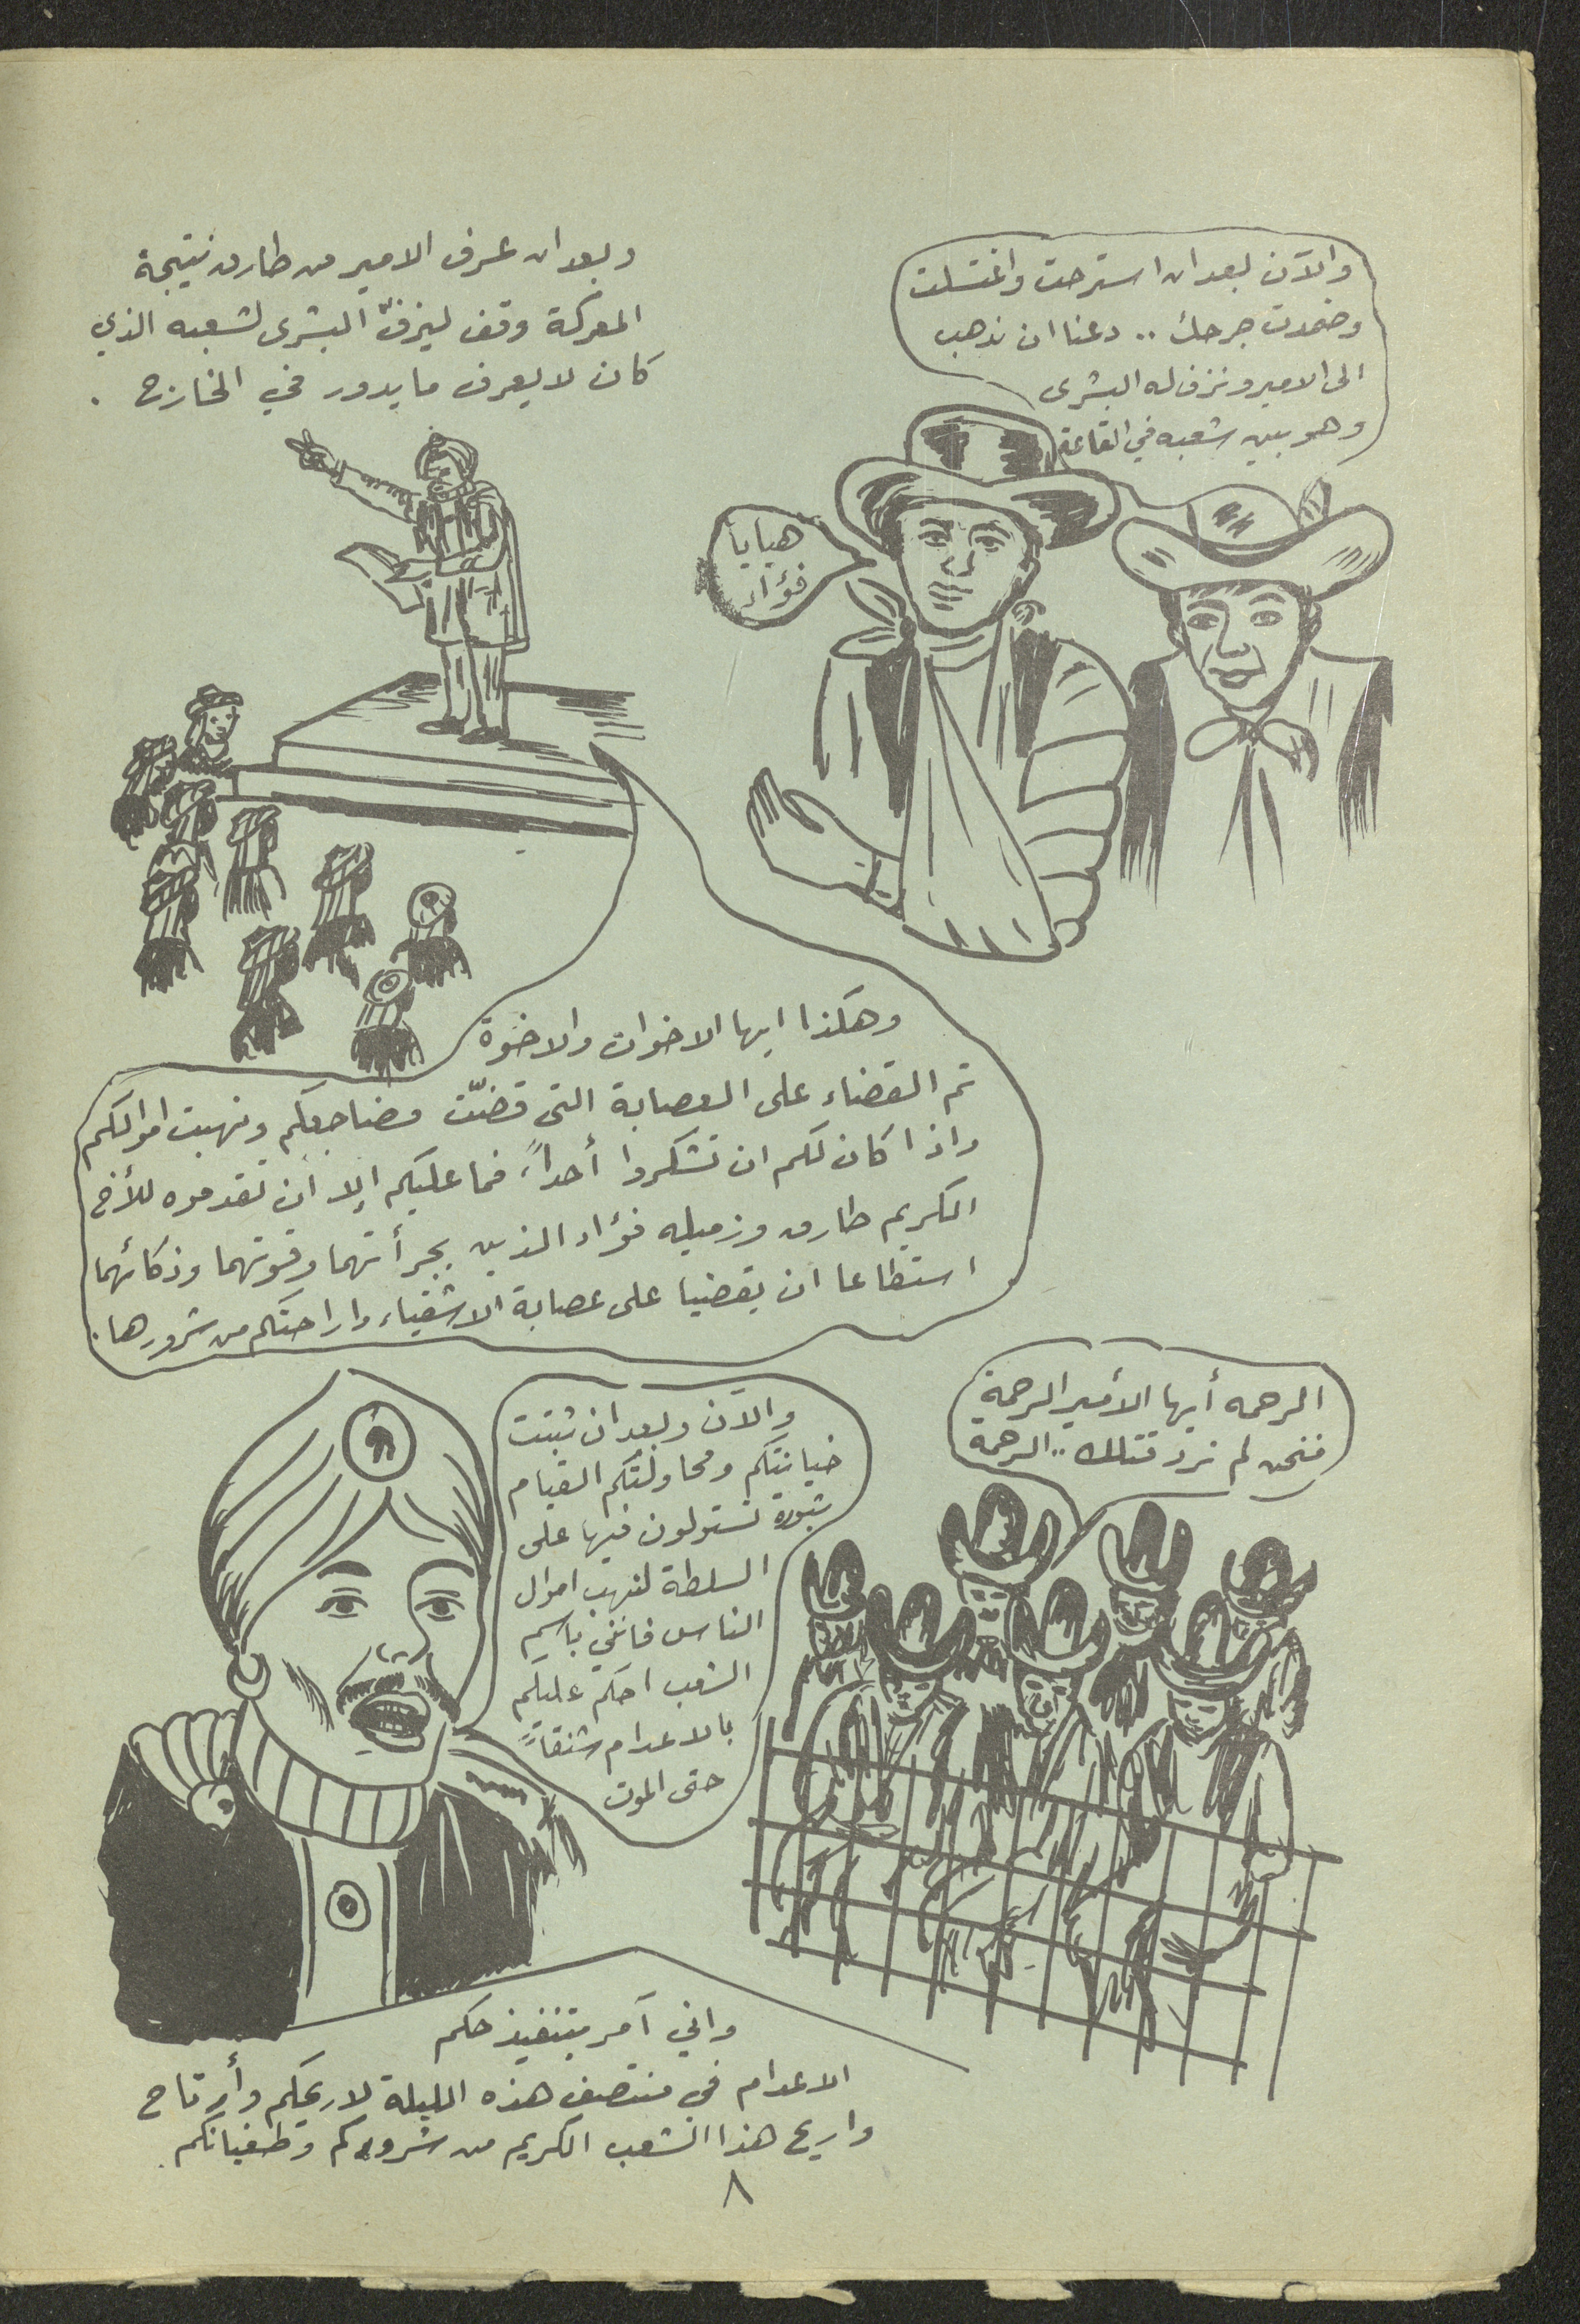 والآن بعد ان استرحت واغتسلت
وضمدت جرحك .. دعنا ان نذهب
الى الامير ونزف له البشرى
وهو بين شعبه في القاعة
هيا يا
فؤاد
وبعد ان عرف الامير من طارق نتيجة
المعركة وقف ليزفّ البشرى لشعبه الذي
كان لا يعرف ما يدور في الخارج .
وهكذا ايها الاخوات والاخوة
تم القضاء على العصابة التي قضّت مضاجعكم ونهبت اموالكم
واذا كان لكم ان تشكروا أحداً، فما عليكم إلا ان تقدموه للأخ
الكريم طارق وزميله فؤاد الذين بجرأتهما وقوتهما وذكائهما
استطاعا ان يقضيا على عصابة الاشقياء واراحتكم من شرورها .
الرحمه أيها الأمير الرحمة
فنحن لم نرد قتلك .. الرحمة
والآن وبعد ان ثبتت
خيانتكم ومحاولتكم القيام
بثورة تستولون فيها على
السلطة لنهب اموال
الناس فانني باسم
الشعب احكم عليكم
بالاعدام شنقاً
حتى الموت
واني آمر بتنفيذ حكم
الاعدام في منتصف هذه الليلة لاريحكم وأرتاح
واريح هذا الشعب الكريم من شروركم وطغيانكم .
٨